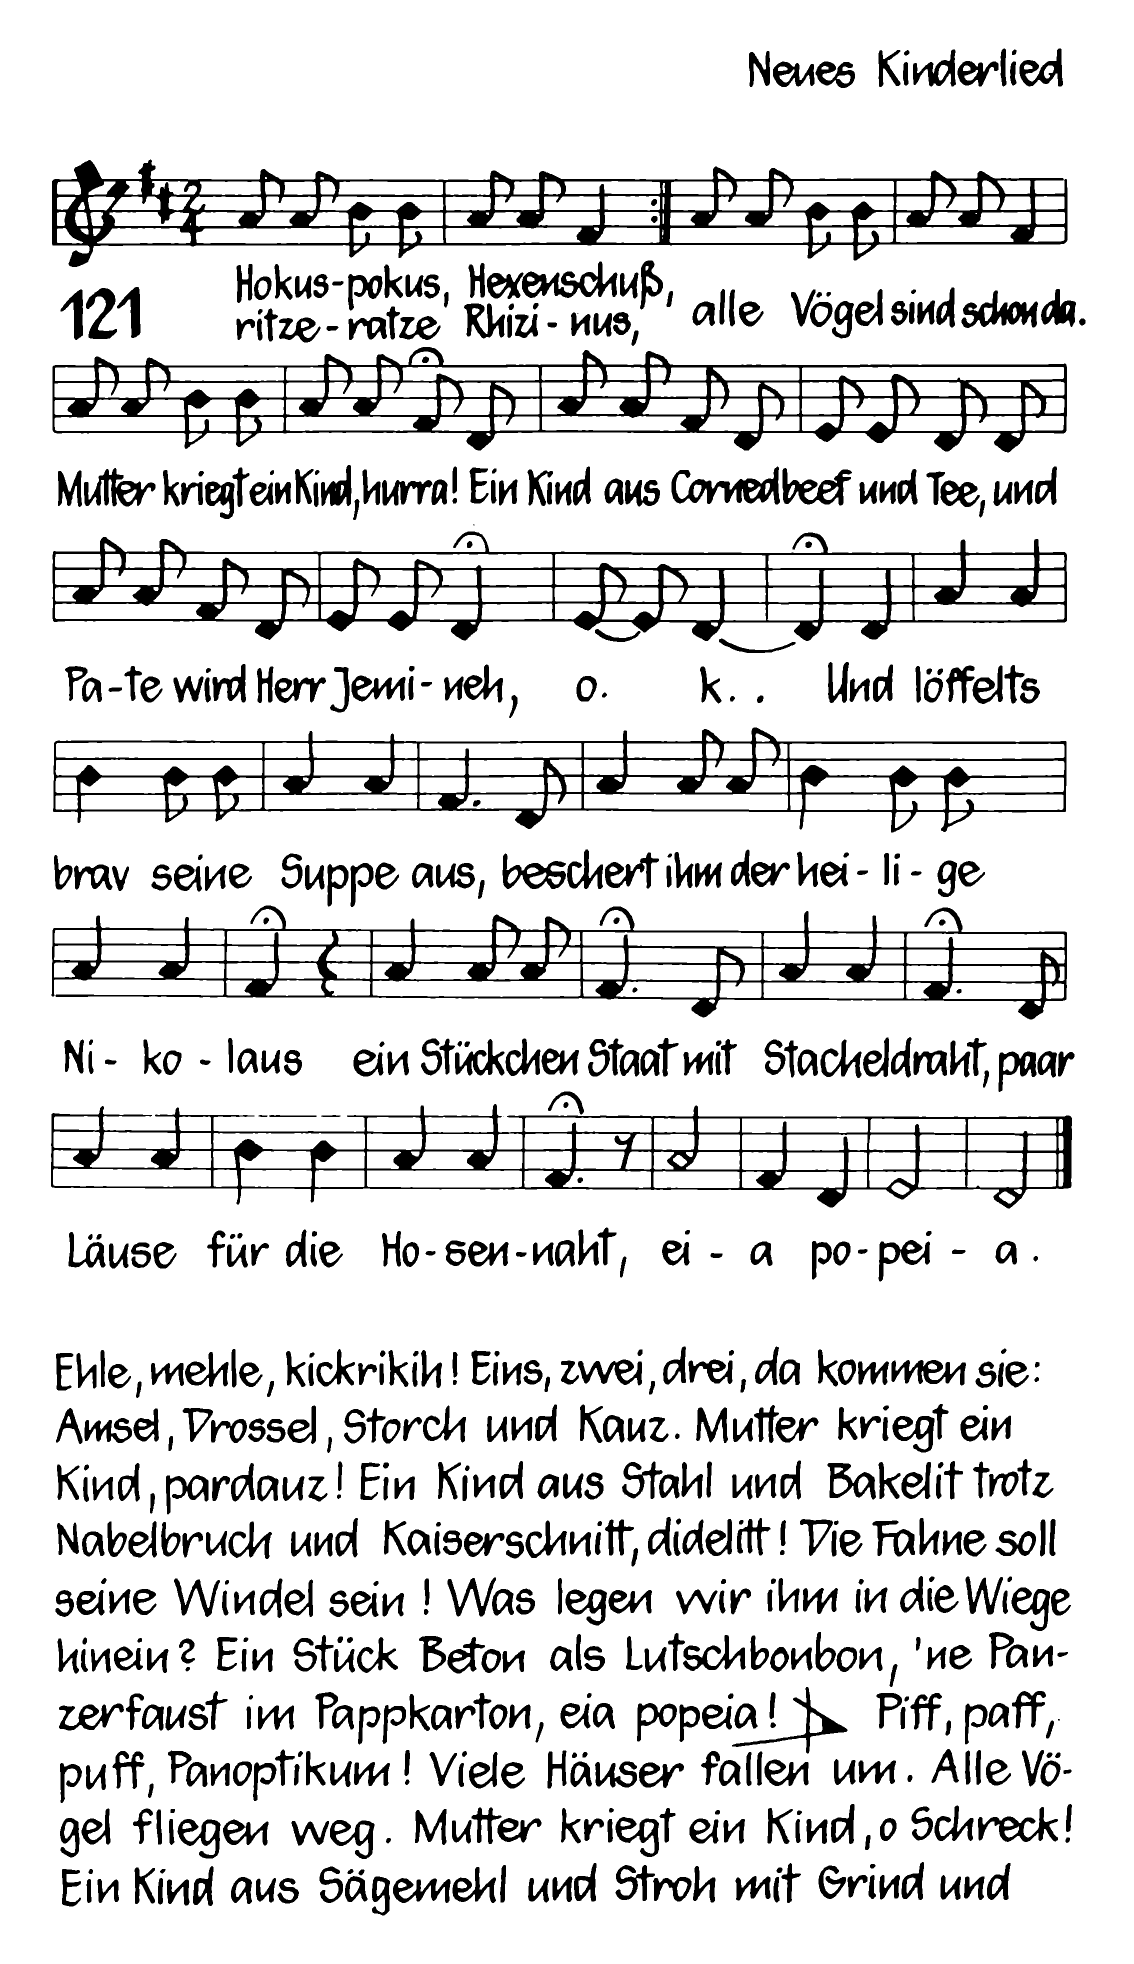 Neues Kinderlied
2
4
121
Hokus-pokus, Hexenschuß,
ritze-ratze Rhizi-nus,
alle Vögel sind schon da.
Mutter kriegt ein Kind, hurra! Ein Kind aus Cornedbeef und Tee, und
Pa-te wird Herr Jemi-neh, o. k. . Und löffelts
brav seine Suppe aus, beschert ihm der hei-li-ge
Ni-ko-laus ein Stückchen Staat mit Stacheldraht, paar
Läuse für die Ho-sen-naht, ei-a po-pei-a.
Ehle, mehle, kickrikih! Eins, zwei, drei, da kommen sie:
Amsel, Drossel, Storch und Kauz. Mutter kriegt ein
Kind, pardauz! Ein Kind aus Stahl und Bakelit trotz
Nabelbruch und Kaiserschnitt, didelitt! Die Fahne soll
seine Windel sein! Was legen wir ihm in die Wiege
hinein? Ein Stück Beton als Lutschbonbon, 'ne Pan-
zerfaust im Pappkarton, eia popeia! Piff, paff,
puff, Panoptikum! Viele Häuser fallen um. Alle Vö-
gel fliegen weg. Mutter kriegt ein Kind, o Schreck!
Ein Kind aus Sägemehl und Stroh mit Grind und